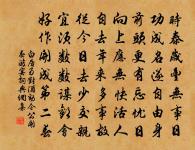 時泰歲豐無事日
功成名遂自由身
前頭更有忘憂日
向上應無快活人
自去年來多事故
從今日去少交親
宜須數數謀歡會
好作開成第二春
白居易對酒勸令公開
春游宴詞典網集